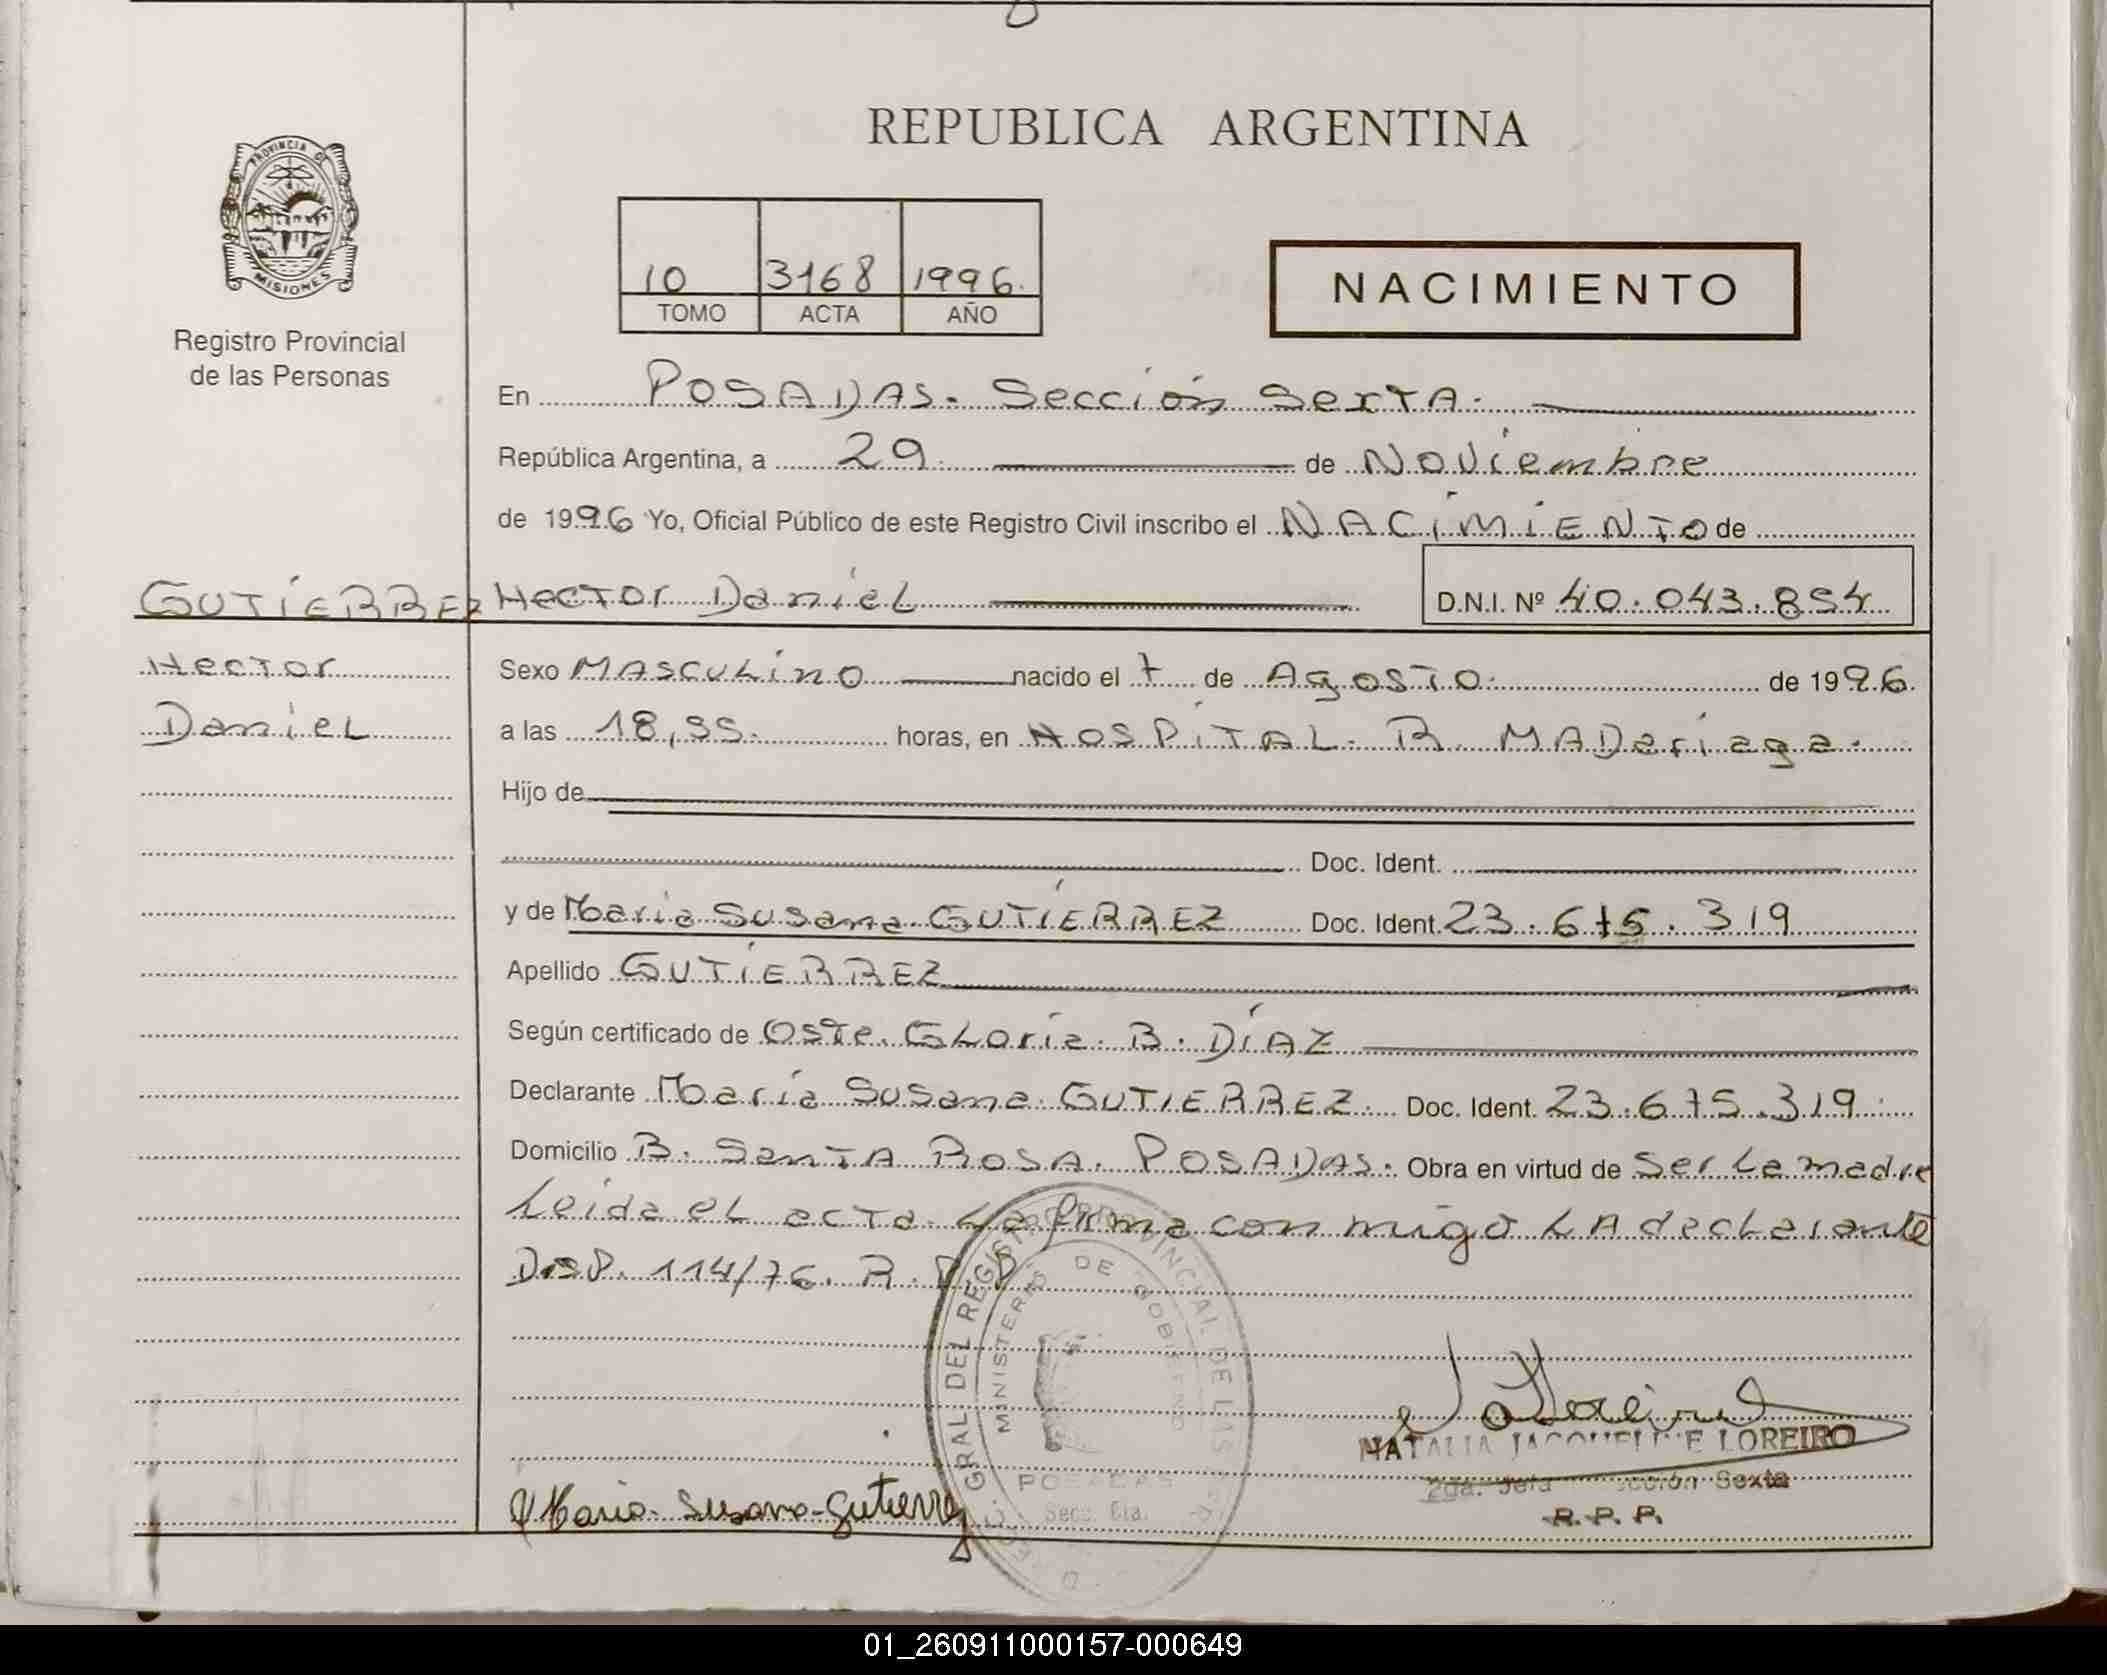 REPUBLICA ARGENTINA
PROVINCIA DE
MISIONES
Registro Provincial
de las Personas
10 3168 1996.
TOMO ACTA AÑO
NACIMIENTO
En POSADAS. Sección Sexta.
República Argentina, a 29 de Noviembre
de 1996 Yo, Oficial Público de este Registro Civil inscribo el NACIMIENTO de
GUTIERREZ Hector Daniel D.N.I. Nº 40.043.854
Hector
Daniel
Sexo MASCULINO nacido el 7 de Agosto de 1996.
a las 18,55. horas, en HOSPITAL R. MADariaga.
Hijo de
Doc. Ident.
y de Maria Susana GUTIERREZ Doc. Ident. 23.675.319
Apellido GUTIERREZ
Según certificado de Oste. Gloria B. DÍAZ
Declarante María Susana GUTIERREZ. Doc. Ident. 23.675.319.
Domicilio B. Santa Rosa. POSADAS. Obra en virtud de Ser la madre
Leida el acta la firma conmigo LA declarante
Disp. 114/76. R.P.P
GRAL DEL REGISTRO PROVINCIAL DE LAS
MINISTERIO DE GOBIERNO
POSADAS
Secc. 6ta.
Maria Susana Gutierrez
NATALIA JACQUELINE LOREIRO
2da. Jefa Sección Sexta
R. P. P.
01_260911000157-000649